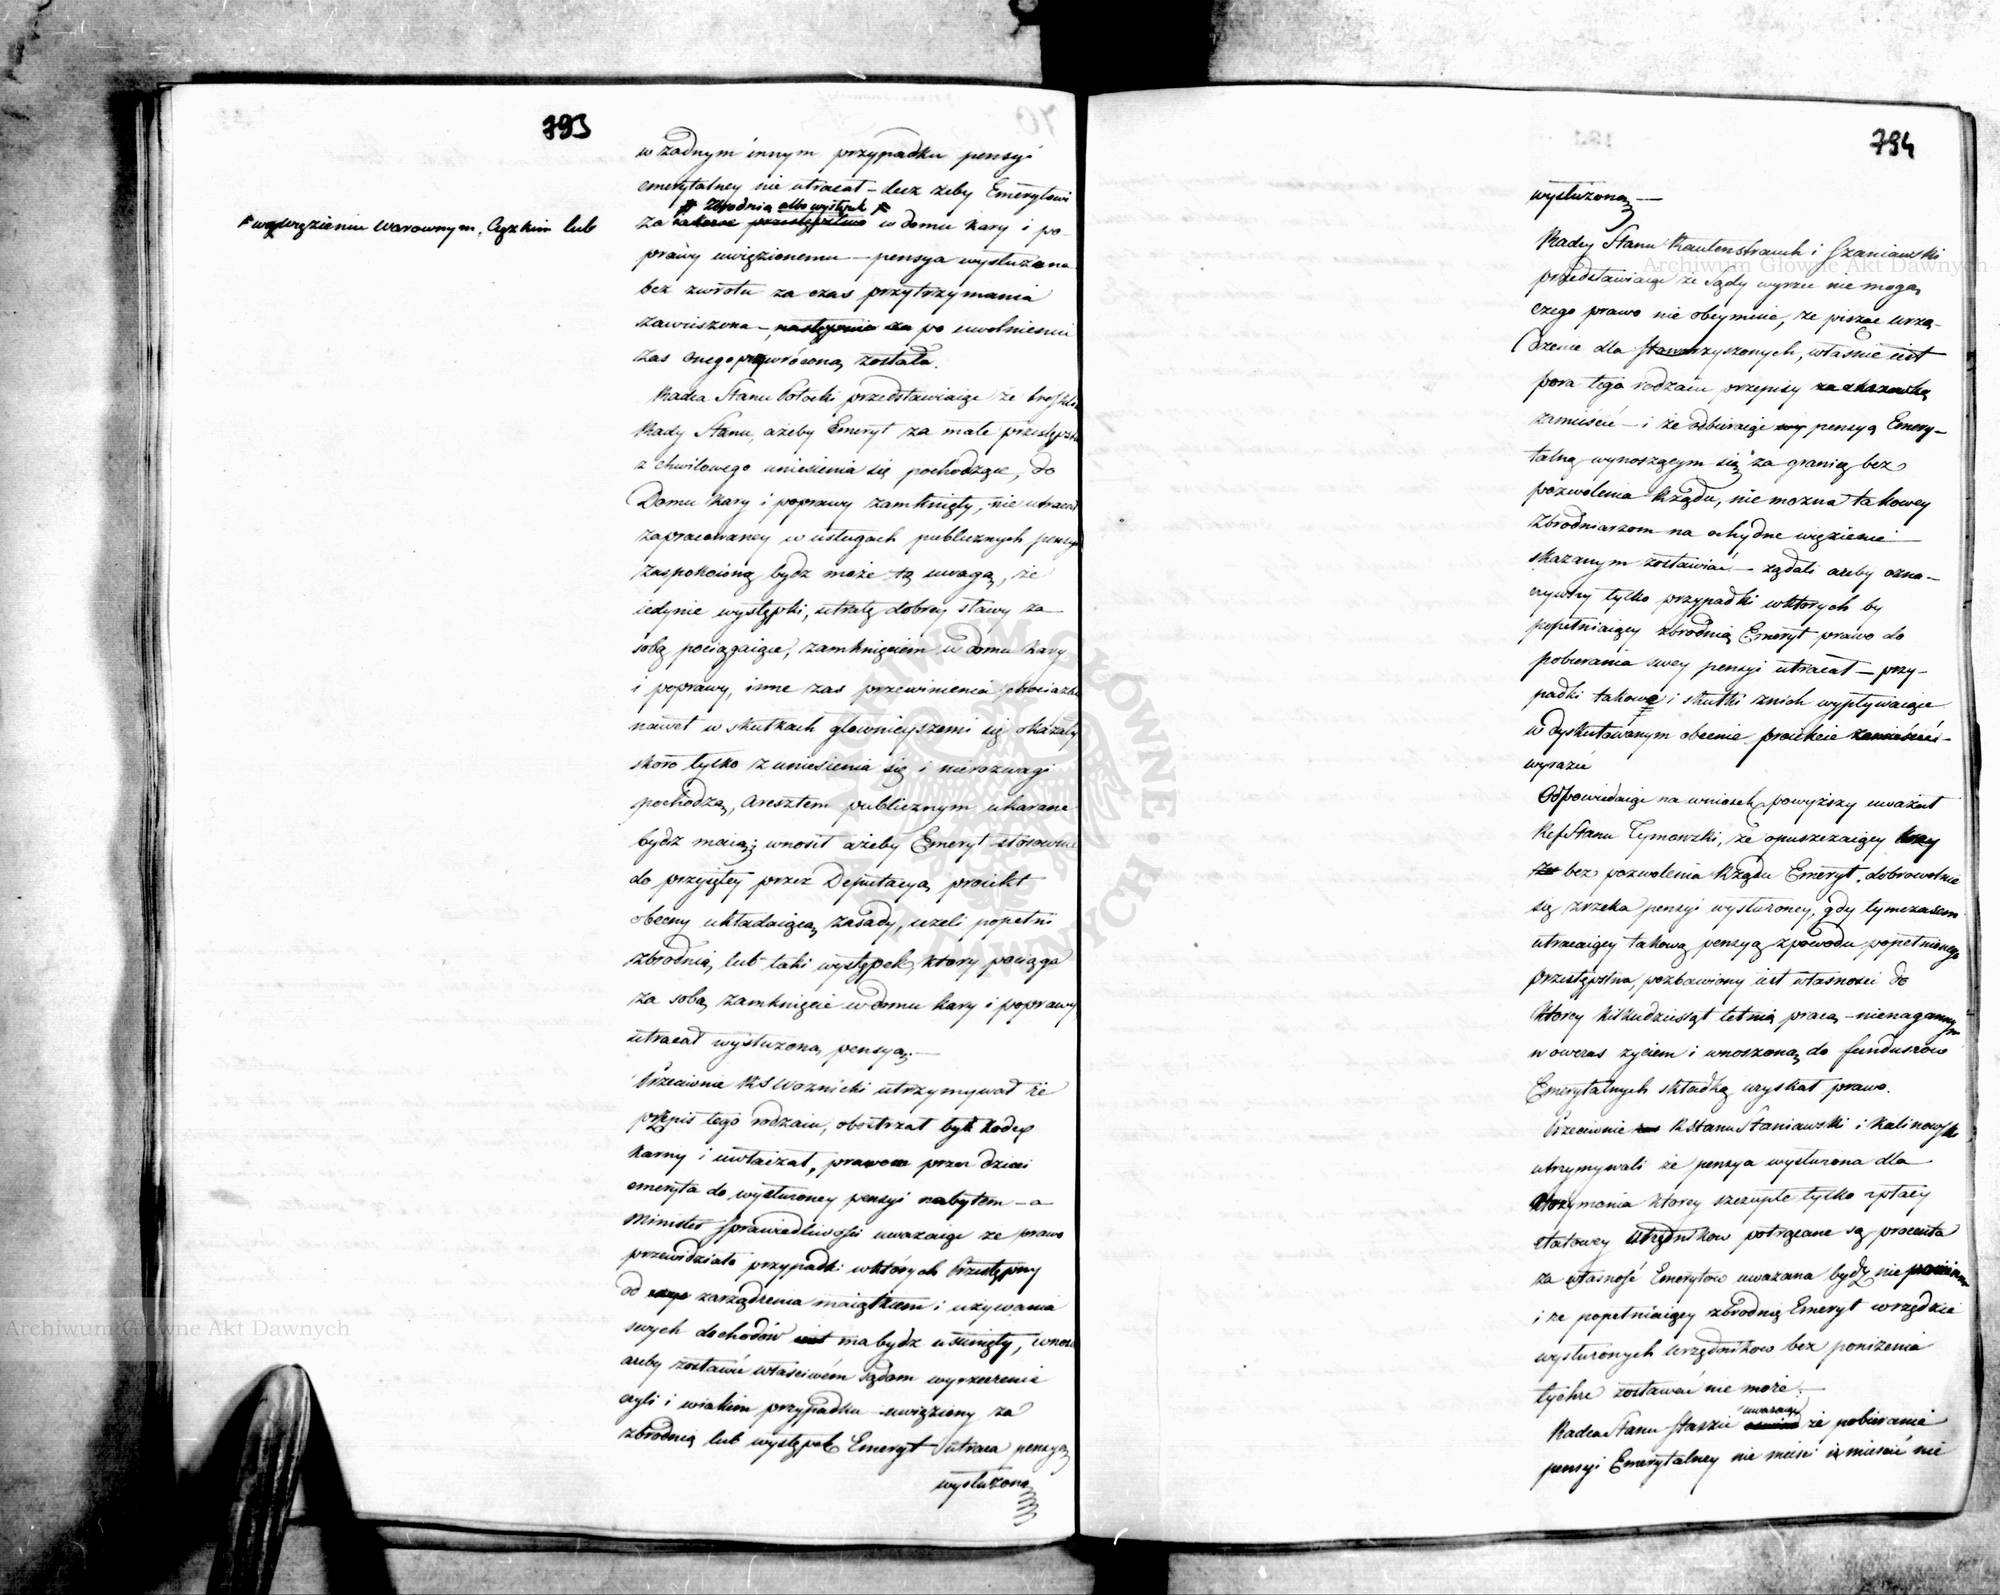 793
w żadnym innym przypadku pensyi
emerytalney nie utracał – lecz żeby Emerytowi
# Zbrodnią albo występek #
# w więzieniu warownym, Cięzkim lub
za takowe przestępstwo w domu kary i po-
prawy uwięzionemu – pensya wysłużona
bez zwrotu za czas przytrzymania
zawieszona –, następnie za po uwolnieniu
zas onego przywróconą została.
Radca Stanu Potocki przedstawiaiąc że troskli
Rady Stanu, ażeby Emeryt za małe przestępst
z chwilowego uniesienia się pochodzące, do
Domu kary i poprawy zamknięty, nie utracał
zapracowaney w usługach publicznych pensyi
zaspokoioną bydź może tą uwagą, że
iedynie występki, utratę dobrey sławy za
sobą pociągaiące, zamknięciem w domu kary
i poprawy, inne zas przewinienia chociażby
nawet w skutkach głownieyszemi się okazały
skoro tylko z uniesienia się i nierozwagi
pochodzą, Aresztem publicznym ukarane
bydź maią; wnosił ażeby Emeryt stosownie
do przyiętey przez Deputacyą proiekt
obecny układaiącą zasady, ieżeli popełni
zbrodnią lub taki występek, ktory pociąga
za sobą zamknięcie w domu kary i poprawy
utracał wysłużoną pensyą. –
Przeciwnie RS Woznicki utrzymywał że
przepis tego rodzaiu, obostrzał by Kodex
karny i uwłaczał, prawom przez dzieci
emeryta do wysłużoney pensyi nabytem – a
Minister Sprawiedliwości uważaiąc że prawo
przewidziało przypadki w których Przestępny
od zarządzenia maiątkiem i używania
swych dochodów iest ma bydź usunięty, wnosi
ażeby zostawić właściwém Sądom wyrzeczenie
czyli i w iakim przypadku uwięziony za
zbrodnią lub występek Emeryt utraca pensyą
wysłużoną
794
wysłużoną –
Radcy Stanu Rautenstrauch i Szaniawski
przedstawiaiąc że Sądy wyrzec nie mogą
czego prawo nie obeymuie, że pisząc urzą-
dzenie dla Stowarzyszonych, właśnie iest
pora tego rodzaiu przepisy
zamieścić – i że odbieraiąc pensyą Emery-
talną wynoszącym się za granicę bez
pozwolenia Rządu, nie można takowey
Zbrodniarzom na ochydne więzienie
skazanym zostawiać – żądali ażeby ozna-
czywszy tylko przypadki w ktorych by
popełniaiący zbrodnią Emeryt prawo do
pobierania swey pensyi utracał – przy-
padki takowe i skutki z nich wypływaiące
w dyskutowanym obecnie proiekcie zamieścić –
wyrazić
Odpowiadaiąc na wniosek powyższy uważał
Ref Stanu Tymowski, że opuszczaiący kray
bez pozwolenia Rządu Emeryt, dobrowolnie
się zrzeka pensyi wysłużoney, gdy tymczasem
utracaiący takową pensyą z powodu popełnionego
przestępstwa, pozbawiony iest własności do
ktorey kilkudziesiąt letnią pracą – nienagannym
n owczas życiem i wnoszoną do funduszow
Emerytalnych składką uzyskał prawo.
Przeciwnie R Stanu Staniawski i Kalinowski
utrzymywali że pensya wysłużona dla
otrzymania ktorey szczupłe tylko z płacy
etatowey Urzędnikow potrącane są procenta
za własność Emerytow uważana bydź nie powinna
i że popełniaiący zbrodnią Emeryt w rzędzie
wysłużonych Urzędnikow bez poniżenia
tychże zostawać nie może. –
uważaiąc
Radca Stanu Staszic że pobieranie
pensyi Emerytalney nie może nie